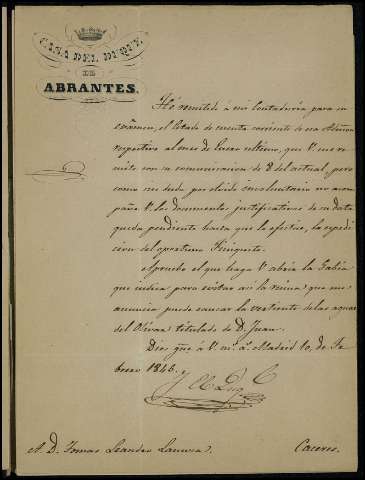 CASA DEL DUQUE
DE
ABRANTES.
Hé remitido á mi Contaduría para su
exámen, el Estado de cuenta corriente de esa Admon
respectivo al mes de Enero último, que V. me re-
mitió con su comunicacion de 8 del actual, pero
como sin duda por olvido involuntario no acom-
paña V. los documentos justificativos de su data
queda pendiente hasta que lo efectue, la espedi-
cion del oportuno Finiquito.
Apruebo el que haga V. abrir la
que indica para evitar asi la ruina que me
anuncia puede causar la vertiente de las aguas
del titulado de D. Juan.
Dios gue á V. ms. as. Madrid 10, de Fe-
brero 1846.
El Duq
A. D. Tomas Leandro
Caceres.